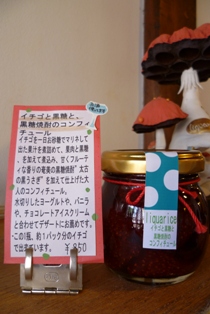 イチゴと黒糖と、
黒糖焼酎のコンフィ
チュール
イチゴを一日お砂糖でマリネして
出た果汁を煮詰めて、果肉と黒糖、
を加えて煮込み、甘くフルーティ
な香りの奄美の黒糖焼酎"太古
の黒うさぎ"を加えて仕上げた大人
のコンフィチュール。
水切りしたヨーグルトや、バニラ
や、チョコレートアイスクリーム
と合わせてデザートにお薦めです。
この1瓶、約1パック分のイチゴ
で出来ています。 ￥850
liquorice
イチゴと黒糖と
黒糖焼酎の
コンフィチュール